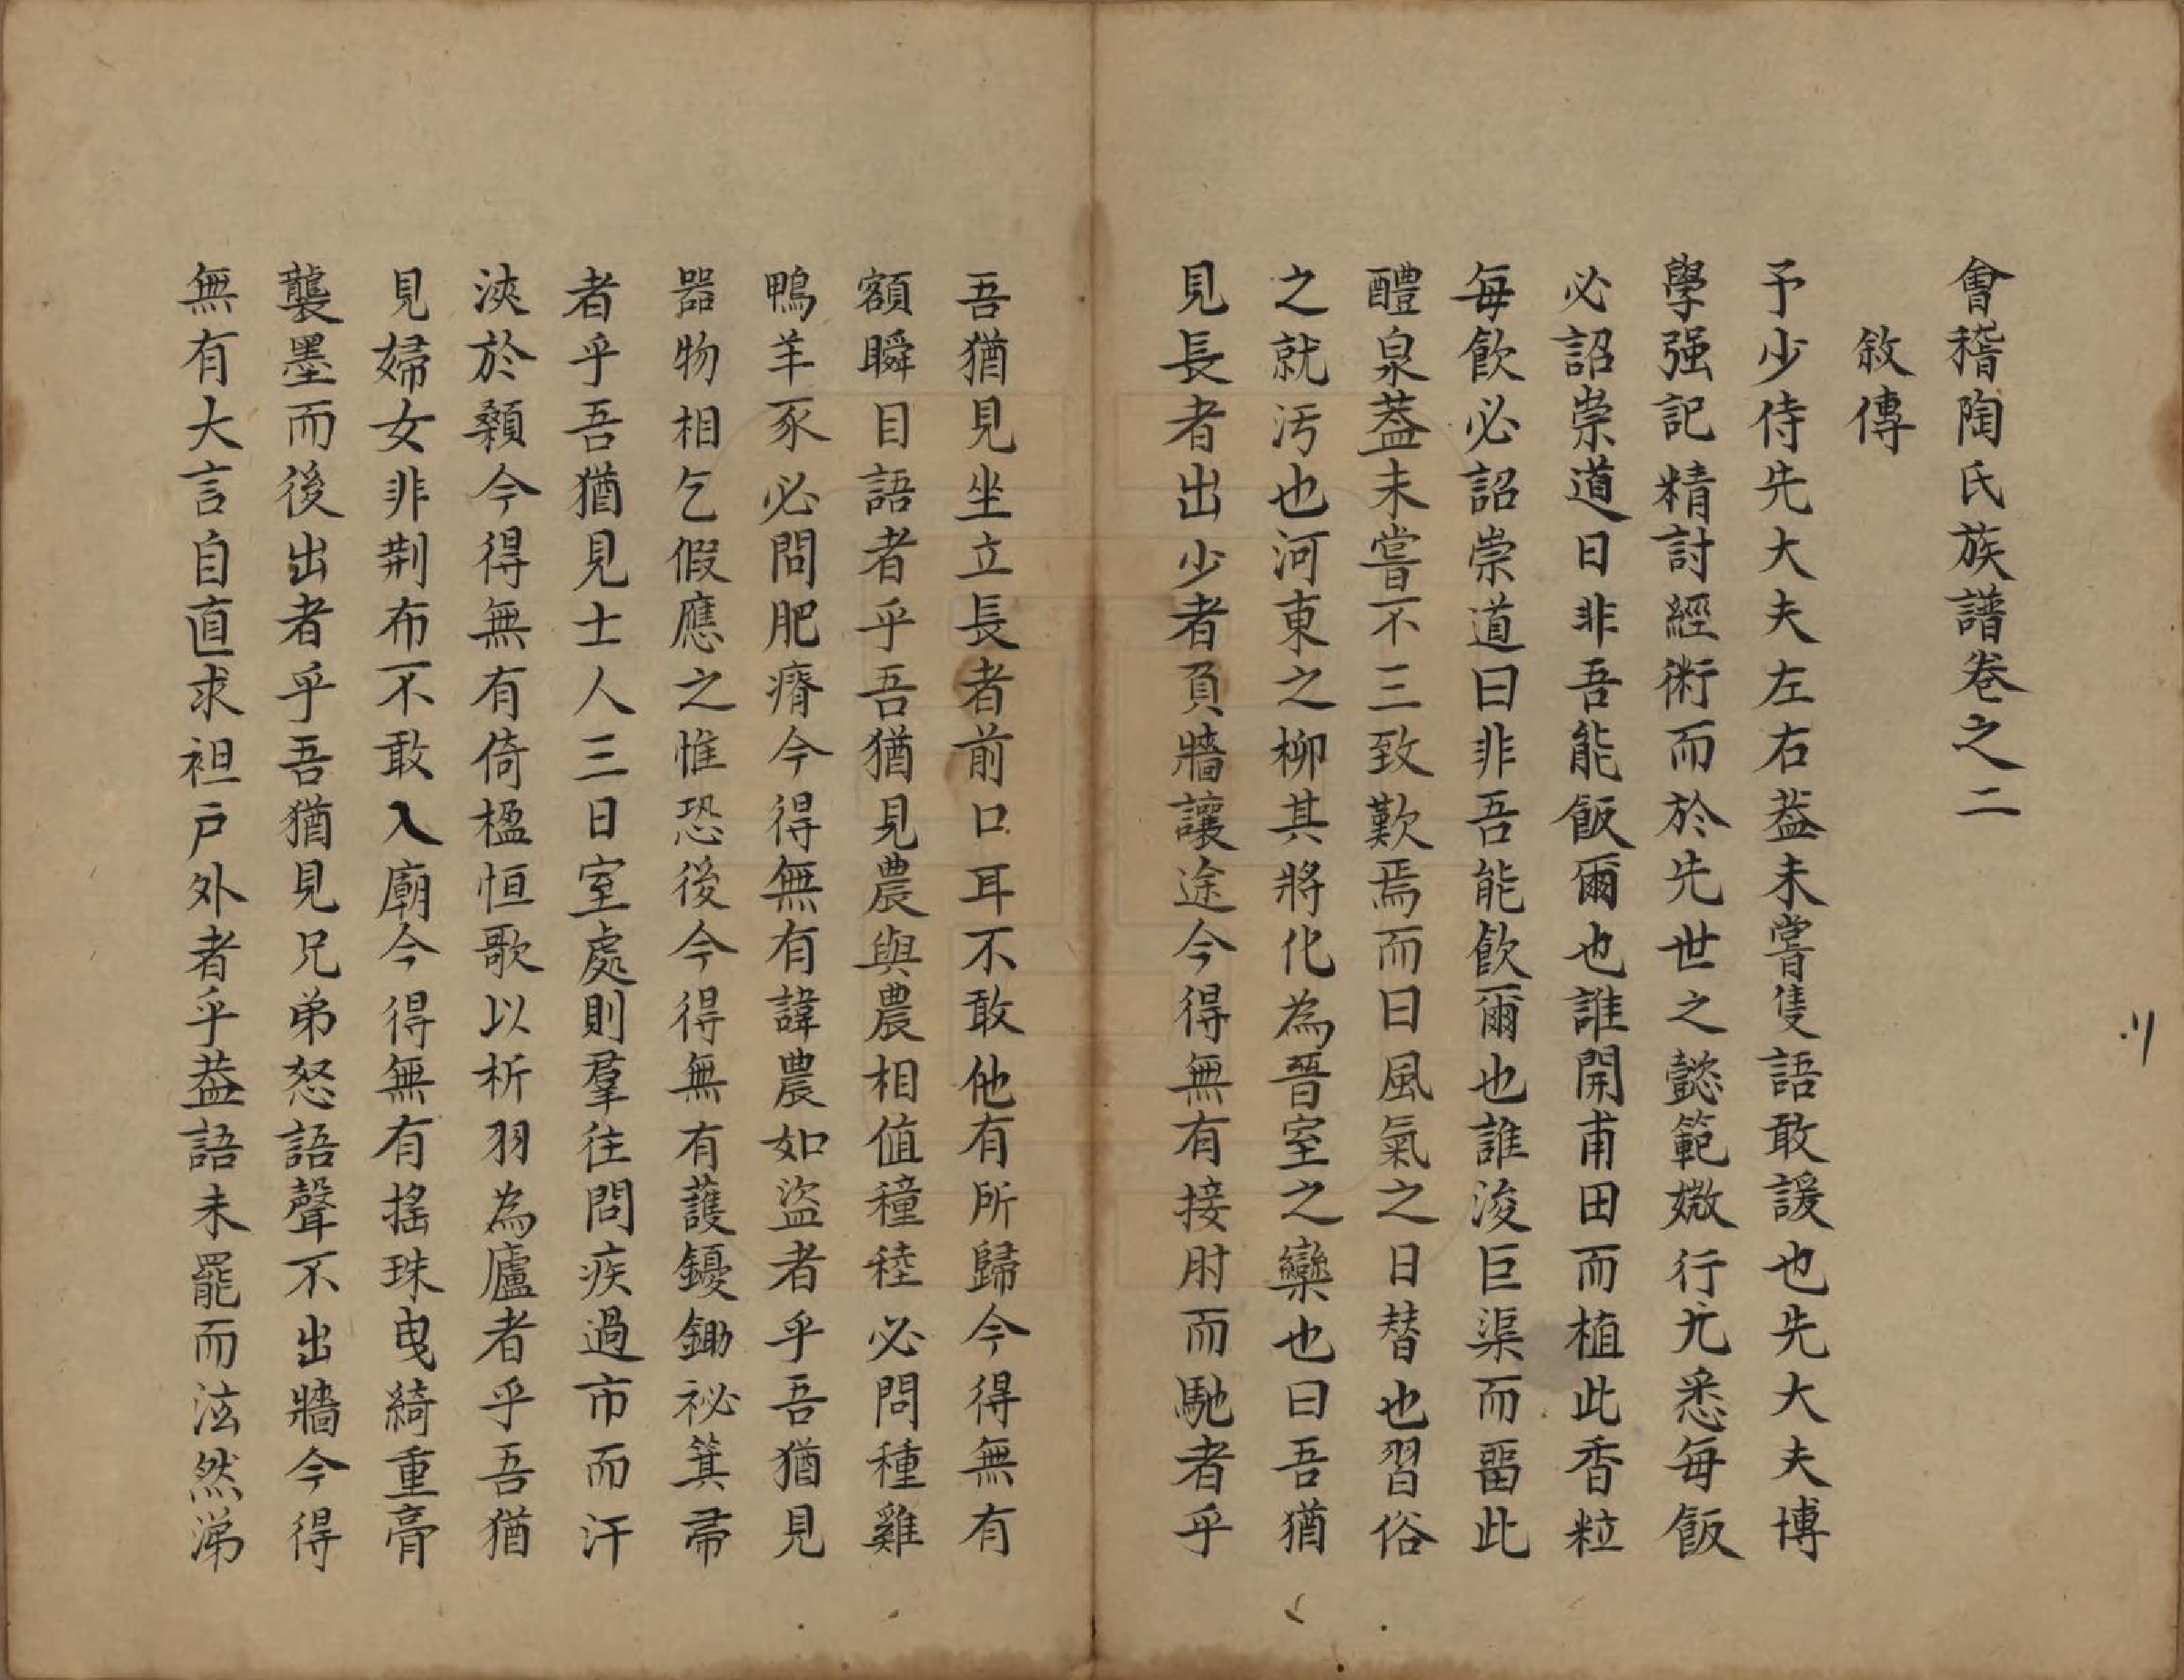 會稽陶氏族譜卷之二
敘傳
予少侍先大夫左右葢未嘗隻語敢諼也先大夫博
學强記精討經術而於先世之懿範媺行尤悉每飯
必詔崇道曰非吾能飯爾也誰開甫田而植此香粒
每飲必詔崇道曰非吾能飲爾也誰浚巨渠而畱此
醴泉葢未嘗不三致歎焉而曰風氣之日替也習俗
之就汚也河東之柳其將化為晉室之欒也曰吾猶
見長者出少者負牆讓途今得無有接肘而馳者乎
吾猶見坐立長者前口耳不敢他有所歸今得無有
額瞬目語者乎吾猶見農與農相值穜稑必問種雞
鴨羊豕必問肥瘠今得無有諱農如盜者乎吾猶見
器物相乞假應之惟恐後今得無有護鑊鋤祕箕帚
者乎吾猶見士人三日室處則羣往問疾過市而汗
浹於顙今得無有倚楹恒歌以析羽為廬者乎吾猶
見婦女非荆布不敢入廟今得無有搖珠曳綺重膏
襲墨而後出者乎吾猶見兄弟怒語聲不出牆今得
無有大言自直求袒戶外者乎葢語未罷而泫然涕